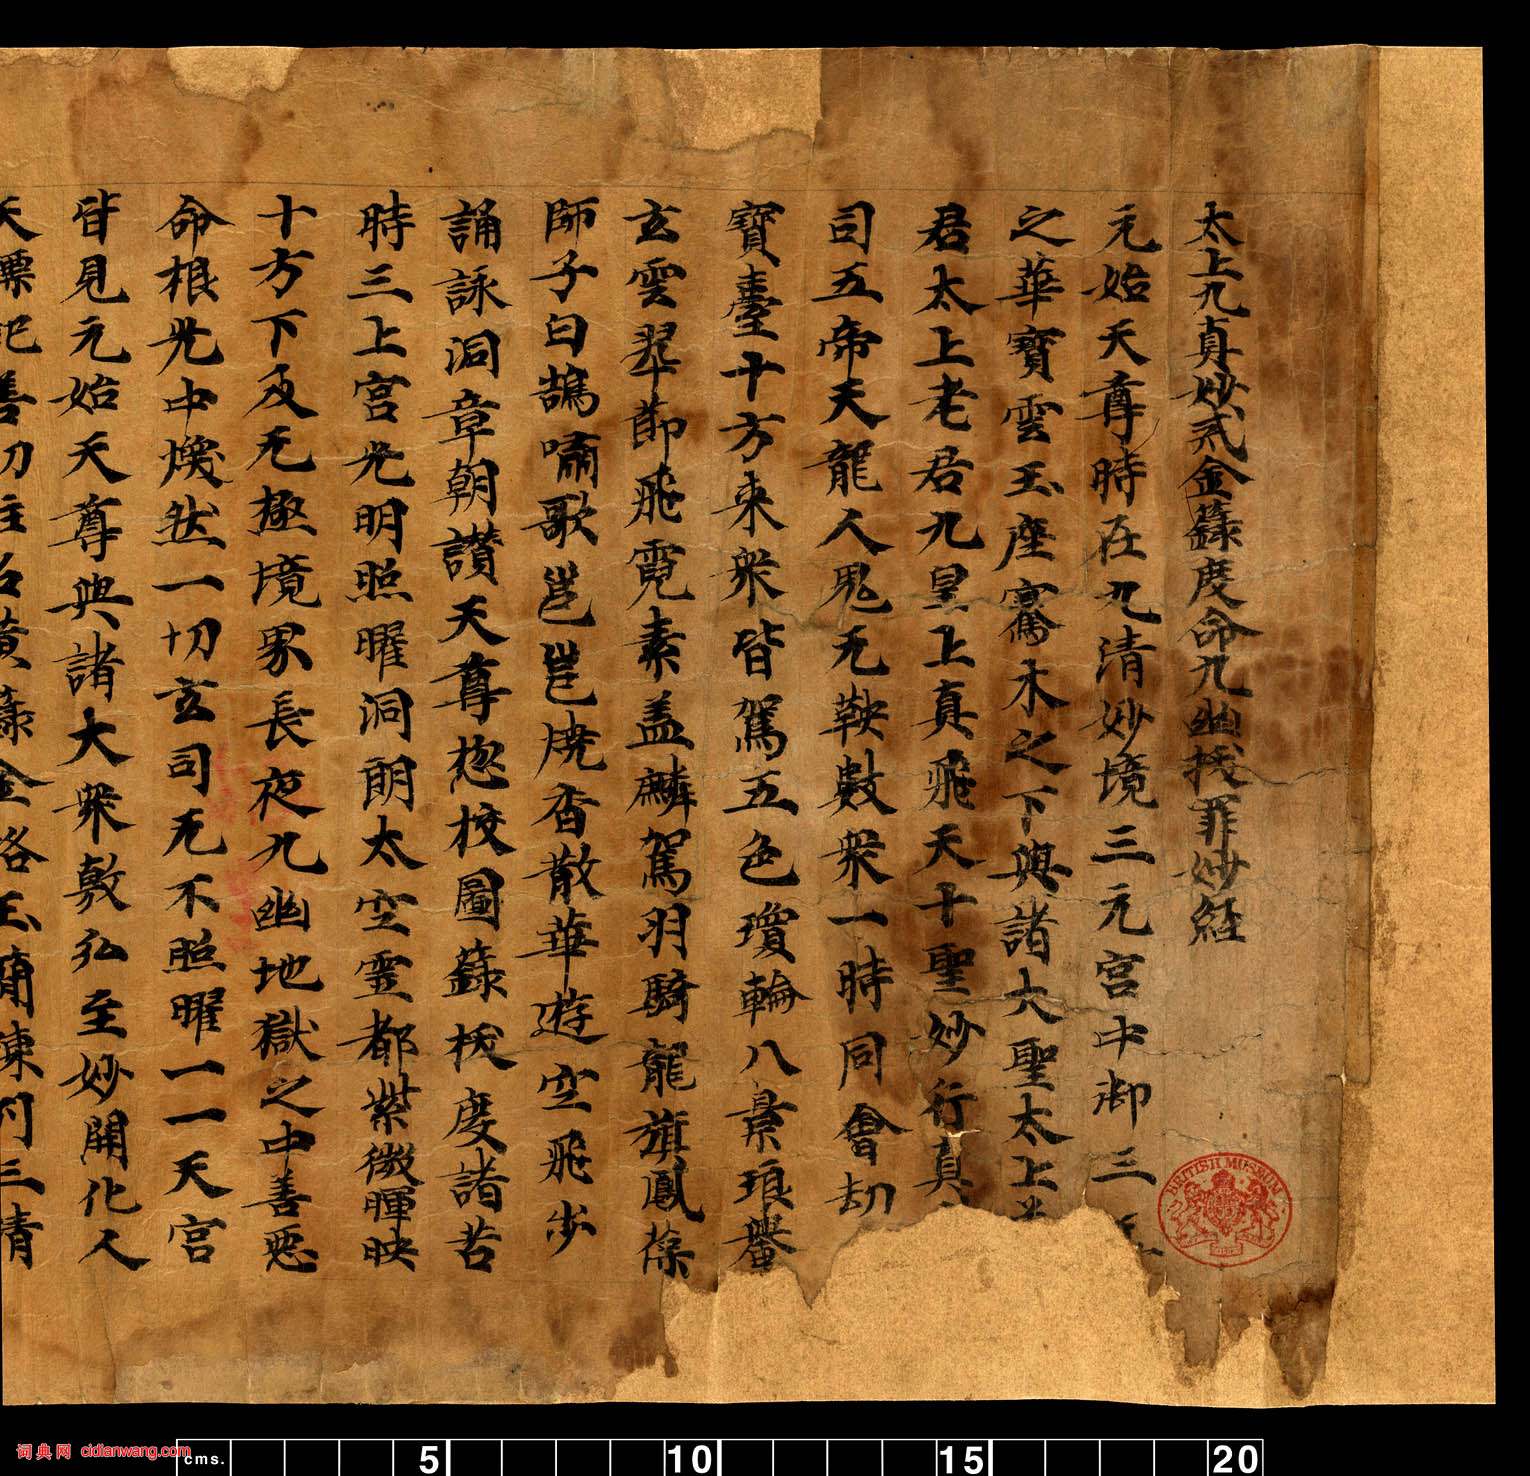 太上九真妙戒金籙度命九幽拔罪妙經
元始天尊時在九清妙境三元宫中御三
之華寶雲玉座騫木之下與諸大聖太上
君太上老君九皇上真飛天十聖妙行真
司五帝天龍人鬼无鞅數衆一時同會劫
寶臺十方来衆皆駕五色瓊輪八景琅轝
玄雲翠節飛霓素盖麟駕羽騎龍旗鳳葆
師子白鵠嘯歌邕邕燒香散華遊空飛步
誦詠洞章朝讃天尊惣校圖籙拔度諸苦
時三上宫光明照曜洞朗太空靈都紫微暉映
十方下及无極境界長夜九幽地獄之中善惡
命根光中煥然一切玄司无不照曜一一天宫
皆見元始天尊與諸大衆敷弘至妙開化人
天 記善功 黄籙金格玉簡 三清
BRITISH MUSEUM
词典网 cidianwang.com
cms. 5 10 15 20